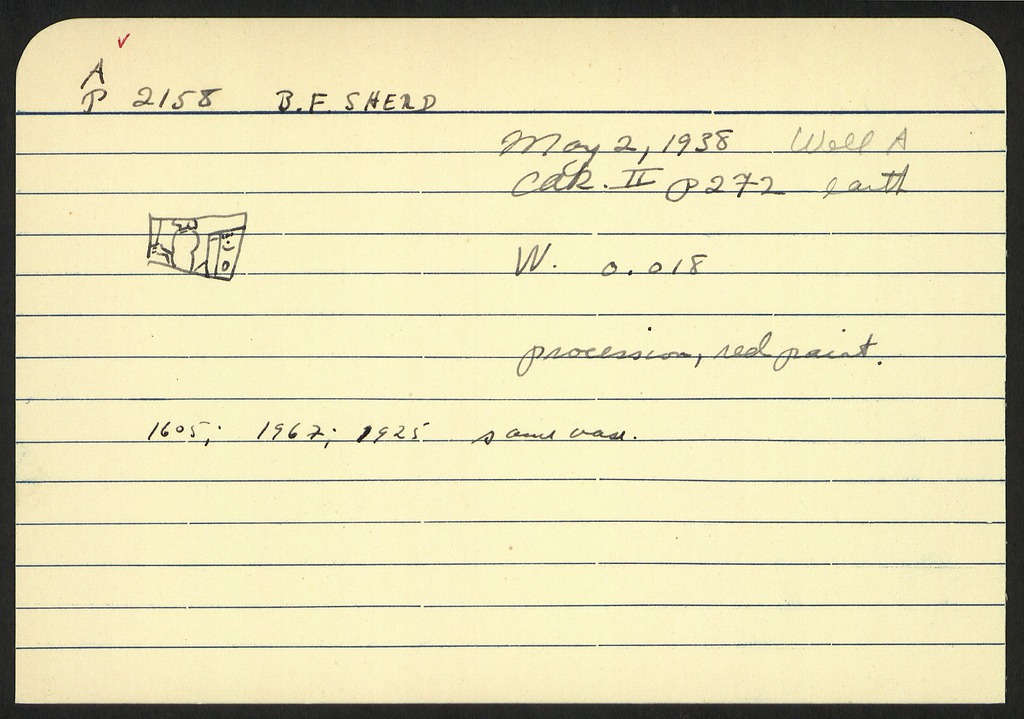 A
P 2158 B.F. SHERD
May 2, 1938 Well A
Cak. II p 272 earth
W. 0.018
procession, red paint.
1605; 1967; 1925 same vase.